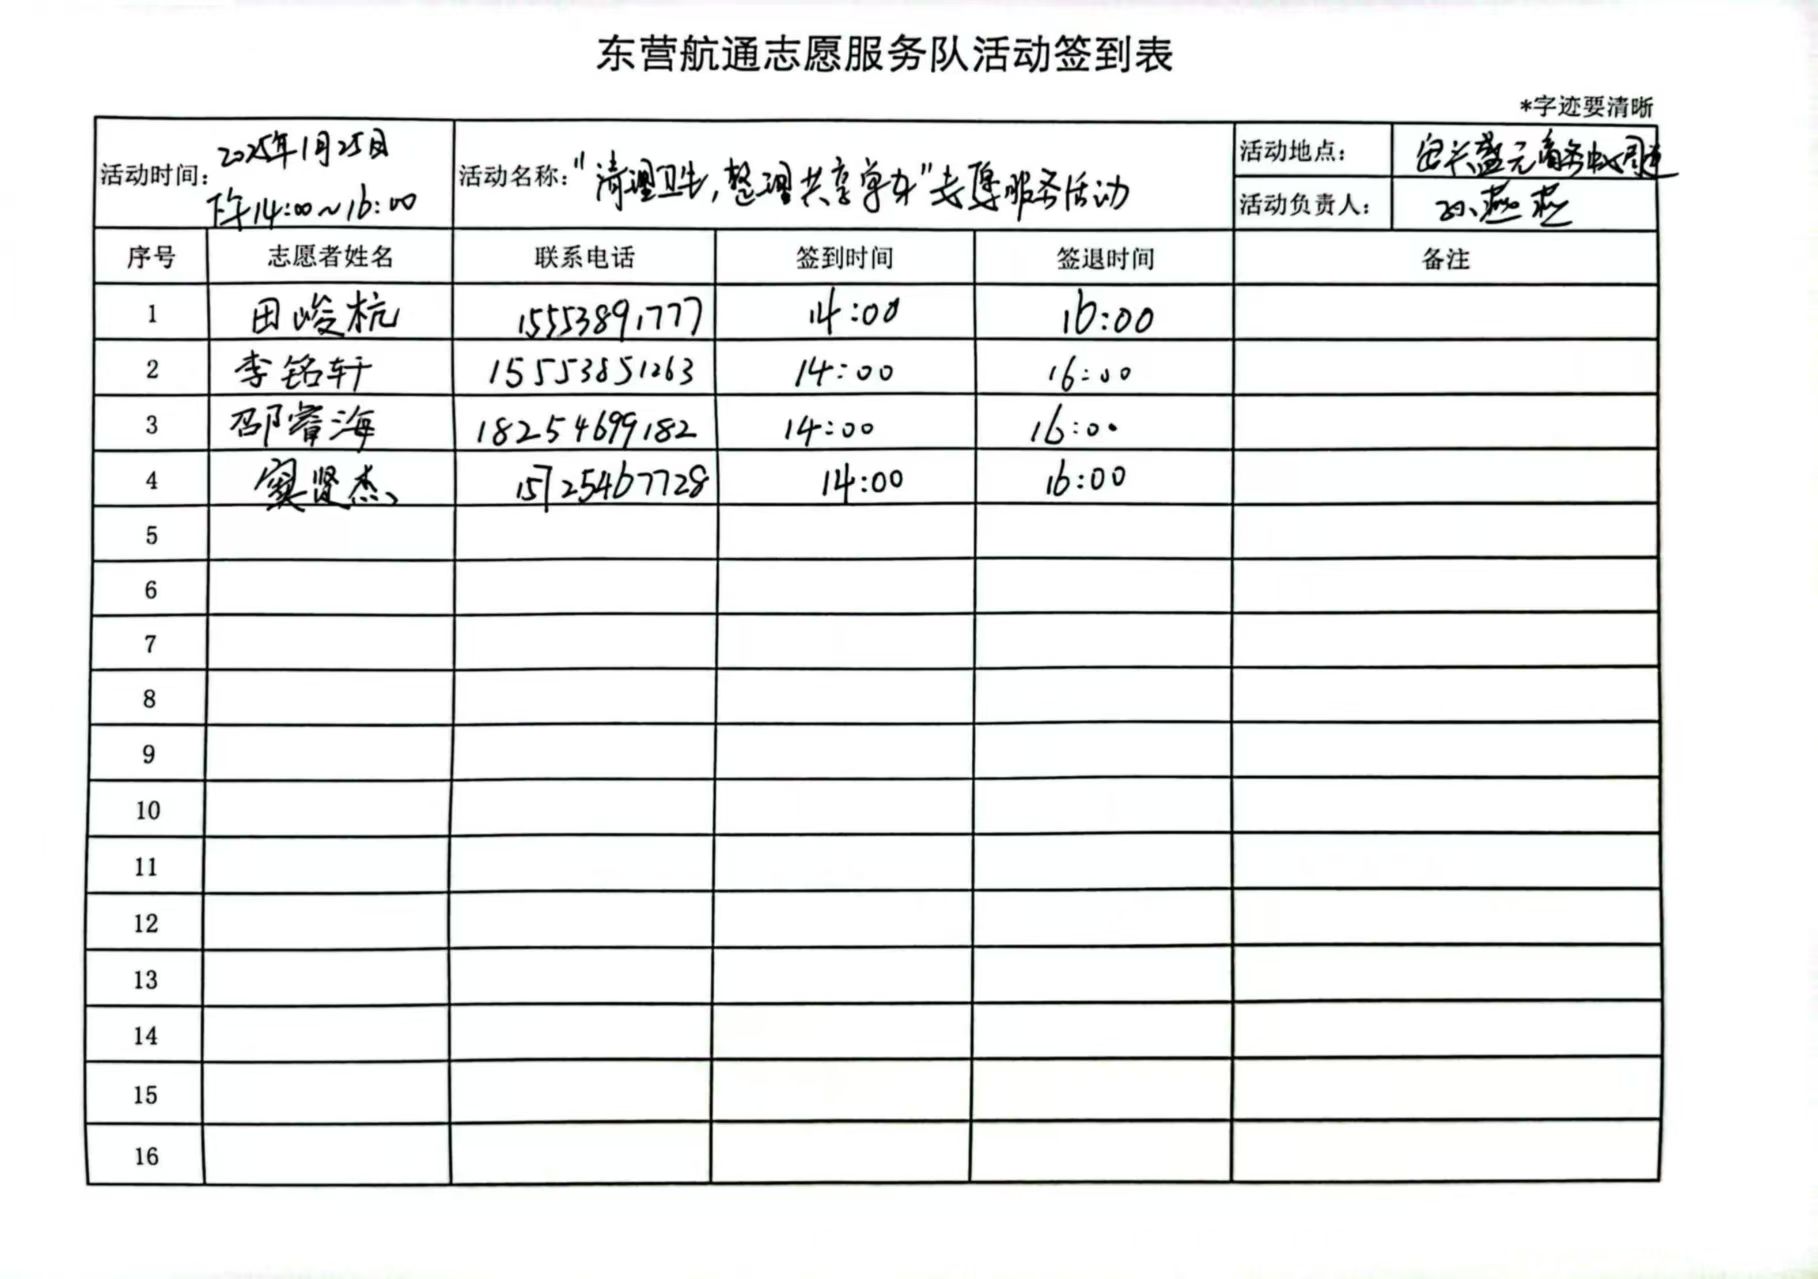 东营航通志愿服务队活动签到表
*字迹要清晰
活动时间: 2025年1月25日
下午14:00~16:00
活动名称: "清理卫生,整理共享单车"志愿服务活动
活动地点: 盛元商务中心周边
活动负责人: 孙燕燕
序号 志愿者姓名 联系电话 签到时间 签退时间 备注
1 田峻杭 15553891777 14:00 16:00
2 李铭轩 15553851263 14:00 16:00
3 邵睿海 18254699182 14:00 16:00
4 窦贤杰 15725467728 14:00 16:00
5
6
7
8
9
10
11
12
13
14
15
16